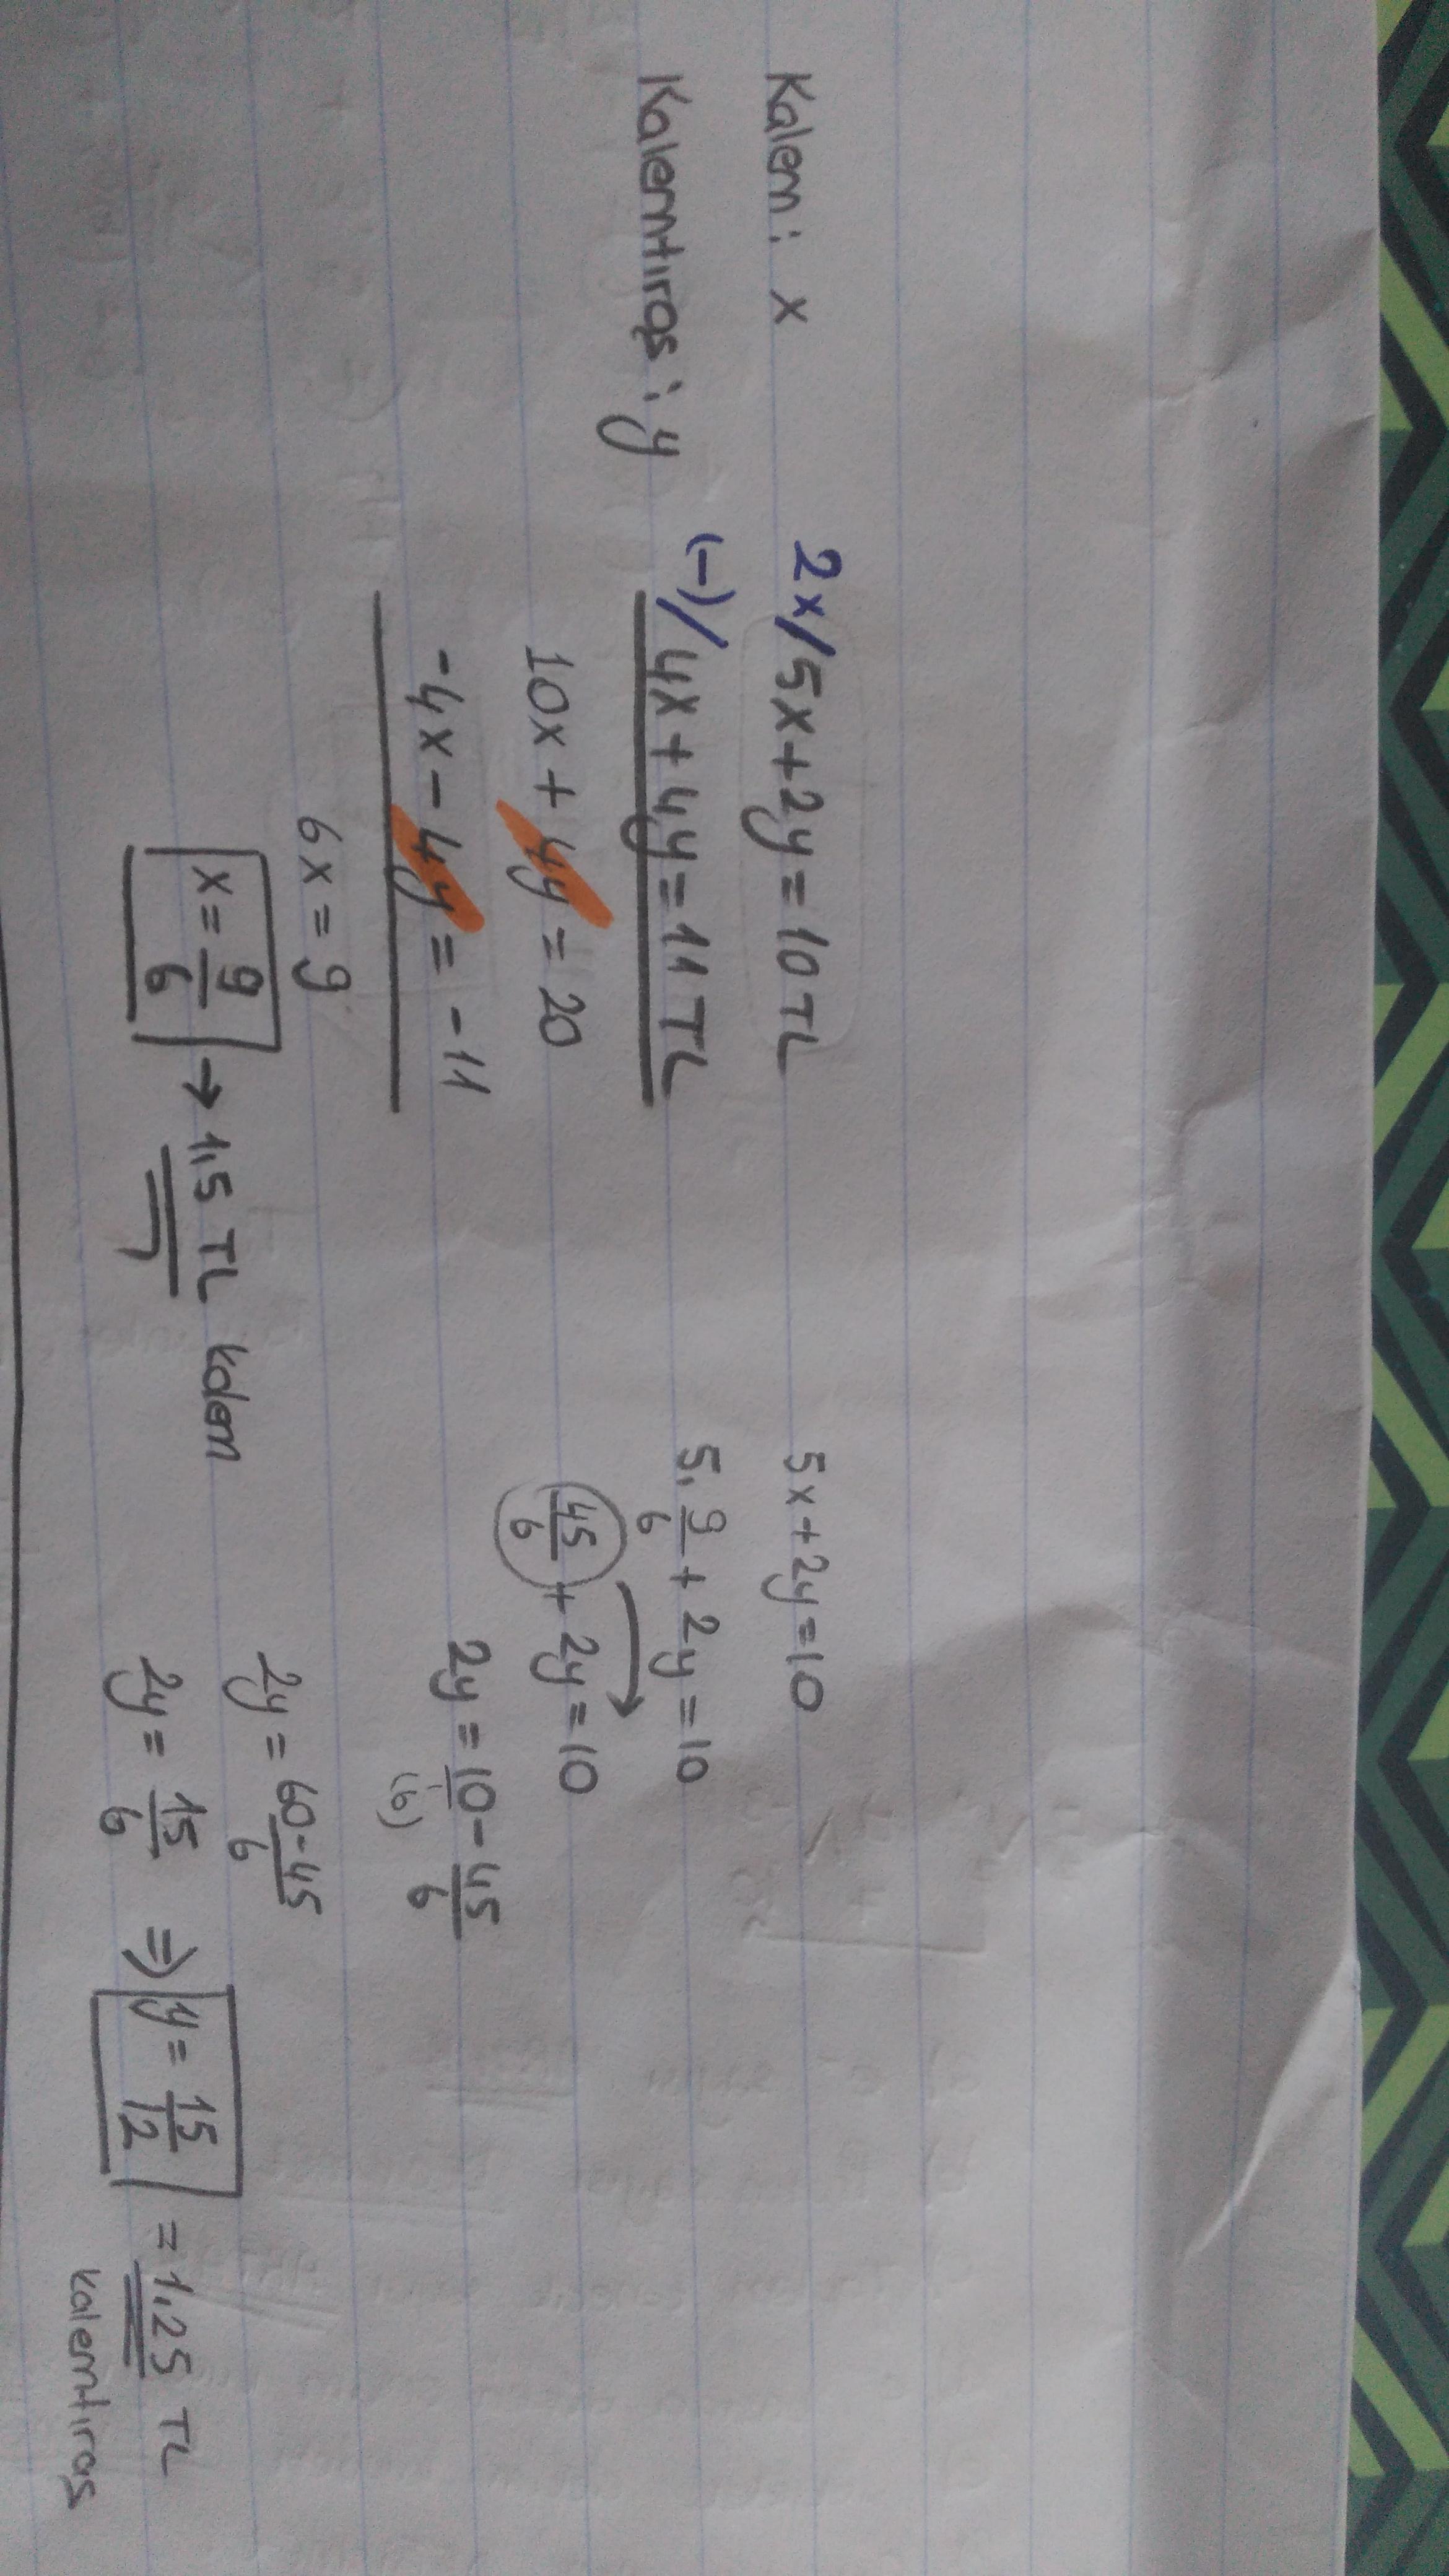 Kalem: x
Kalemtıraş: y
2x/ 5x+2y=10 TL
(-)/ 4x+4y=11 TL
10x+4y=20
-4x-4y=-11
6x=9
x=9/6 → 1,5 TL kalem
5x+2y=10
5.9/6+2y=10
45/6+2y=10
2y=10-45/6
(6)
2y=60-45/6
2y=15/6 ⇒ y=15/12 =1,25 TL
kalemtıraş